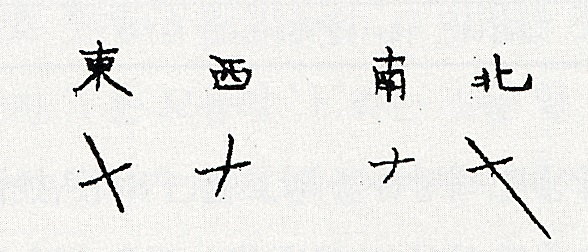 東 西 南 北